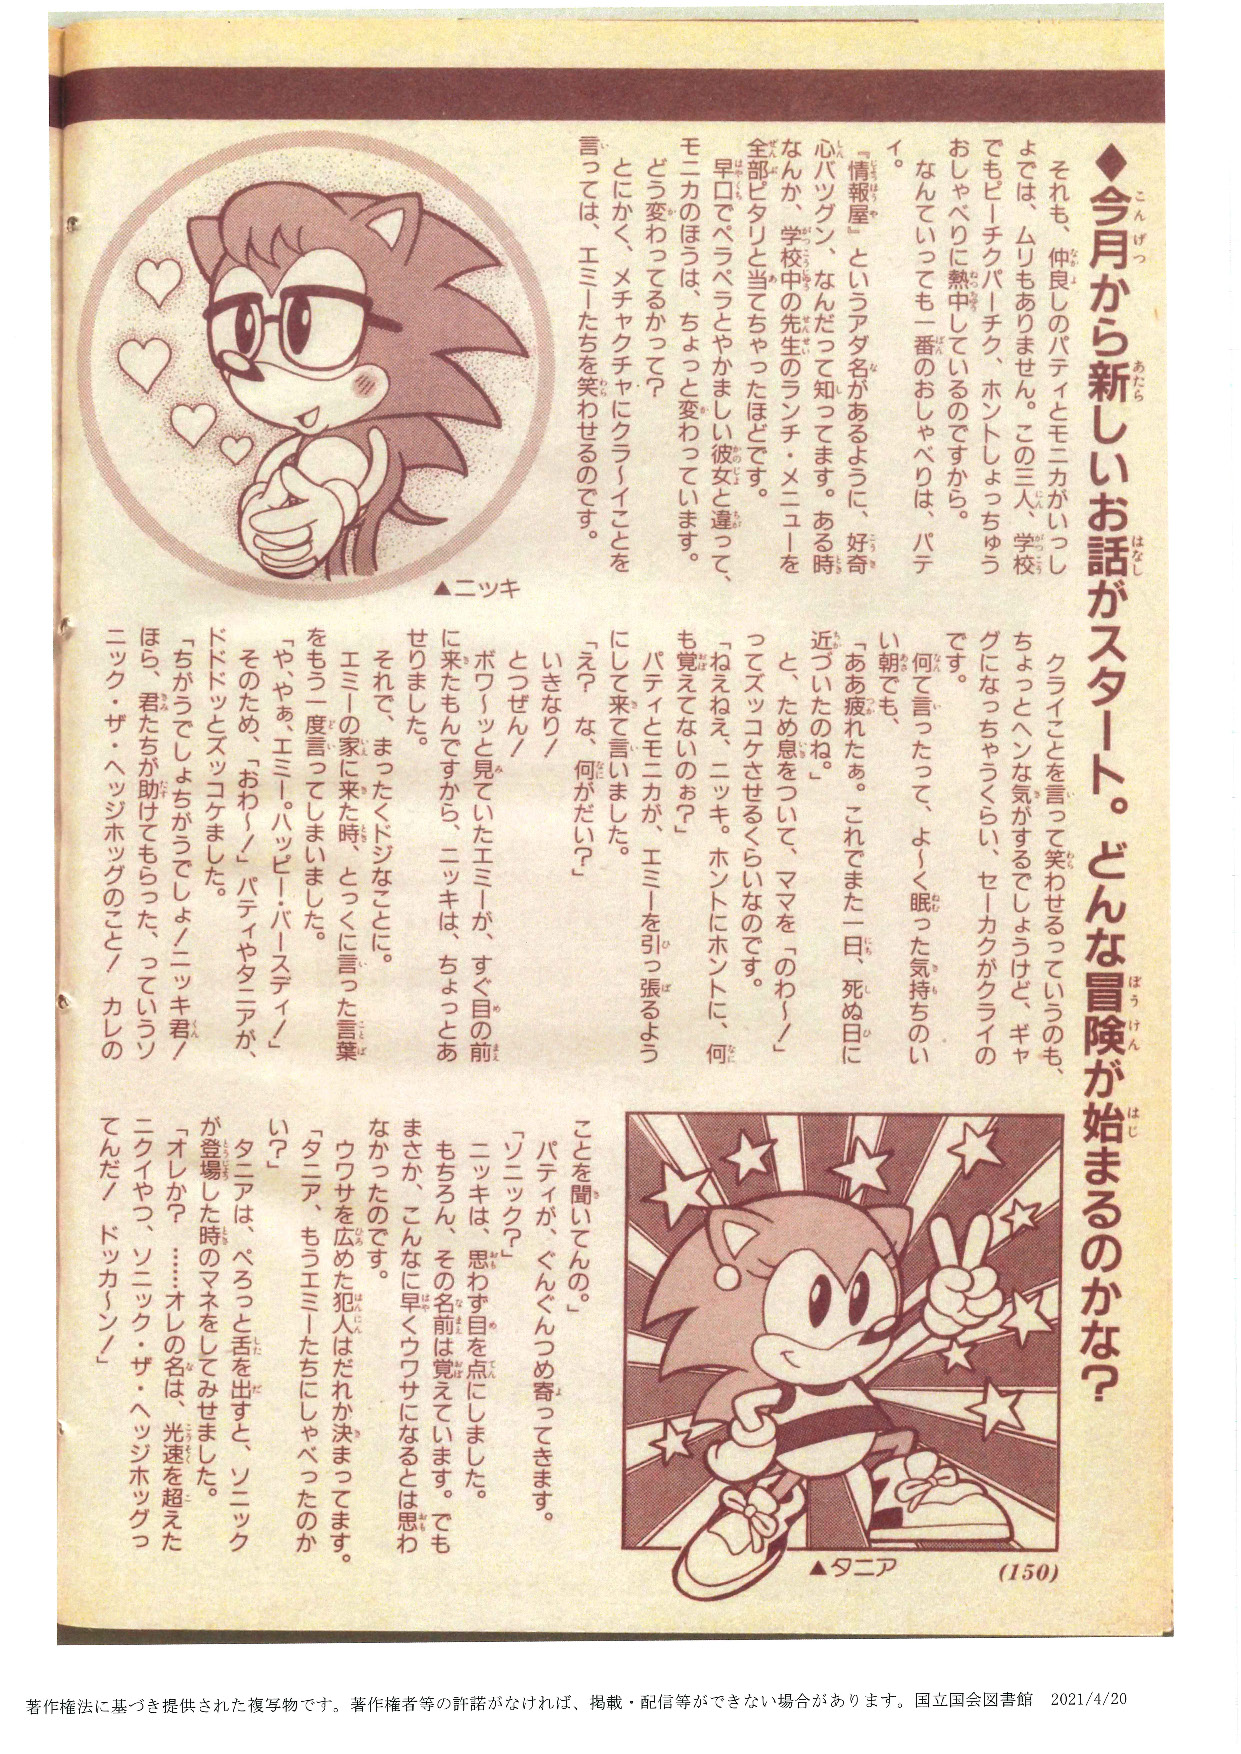 ◆今月から新しいお話がスタート。どんな冒険が始まるのかな？
それも、仲良しのパティとモニカがいっし
ょでは、ムリもありません。この三人、学校
でもピーチクパーチク、ホントしょっちゅう
おしゃべりに熱中しているのですから。
なんていっても一番のおしゃべりは、パテ
ィ。
『情報屋』というアダ名があるように、好奇
心バツグン、なんだって知ってます。ある時
なんか、学校中の先生のランチ・メニューを
全部ピタリと当てちゃったほどです。
早口でペラペラとやかましい彼女と違って、
モニカのほうは、ちょっと変わっています。
どう変わってるかって？
とにかく、メチャクチャにクラ〜イことを
言っては、エミーたちを笑わせるのです。
▲ニッキ
クライことを言って笑わせるっていうのも、
ちょっとヘンな気がするでしょうけど、ギャ
グになっちゃうくらい、セーカクがクライの
です。
何て言ったって、よ〜く眠った気持ちのい
い朝でも、
「ああ疲れたぁ。これでまた一日、死ぬ日に
近づいたのね。」
と、ため息をついて、ママを「のわ〜！」
ってズッコケさせるくらいなのです。
「ねえねえ、ニッキ。ホントにホントに、何
も覚えてないのぉ？」
パティとモニカが、エミーを引っ張るよう
にして来て言いました。
「え？　な、何がだい？」
いきなり！
とつぜん！
ボワ〜ッと見ていたエミーが、すぐ目の前
に来たもんですから、ニッキは、ちょっとあ
せりました。
それで、まったくドジなことに。
エミーの家に来た時、とっくに言った言葉
をもう一度言ってしまいました。
「や、やぁ、エミー。ハッピー・バースディ！」
そのため、「おわ〜！」パティやタニアが、
ドドドドッとズッコケました。
「ちがうでしょちがうでしょ！ニッキ君！
ほら、君たちが助けてもらった、っていうソ
ニック・ザ・ヘッジホッグのこと！　カレの
ことを聞いてんの。」
パティが、ぐんぐんつめ寄ってきます。
「ソニック？」
ニッキは、思わず目を点にしました。
もちろん、その名前は覚えています。でも
まさか、こんなに早くウワサになるとは思わ
なかったのです。
ウワサを広めた犯人はだれか決まってます。
「タニア、もうエミーたちにしゃべったのか
い？」
タニアは、ぺろっと舌を出すと、ソニック
が登場した時のマネをしてみせました。
「オレか？　……オレの名は、光速を超えた
ニクイやつ、ソニック・ザ・ヘッジホッグっ
てんだ！　ドッカ〜ン！」
▲タニア
(150)
著作権法に基づき提供された複写物です。著作権者等の許諾がなければ、掲載・配信等ができない場合があります。国立国会図書館　2021/4/20